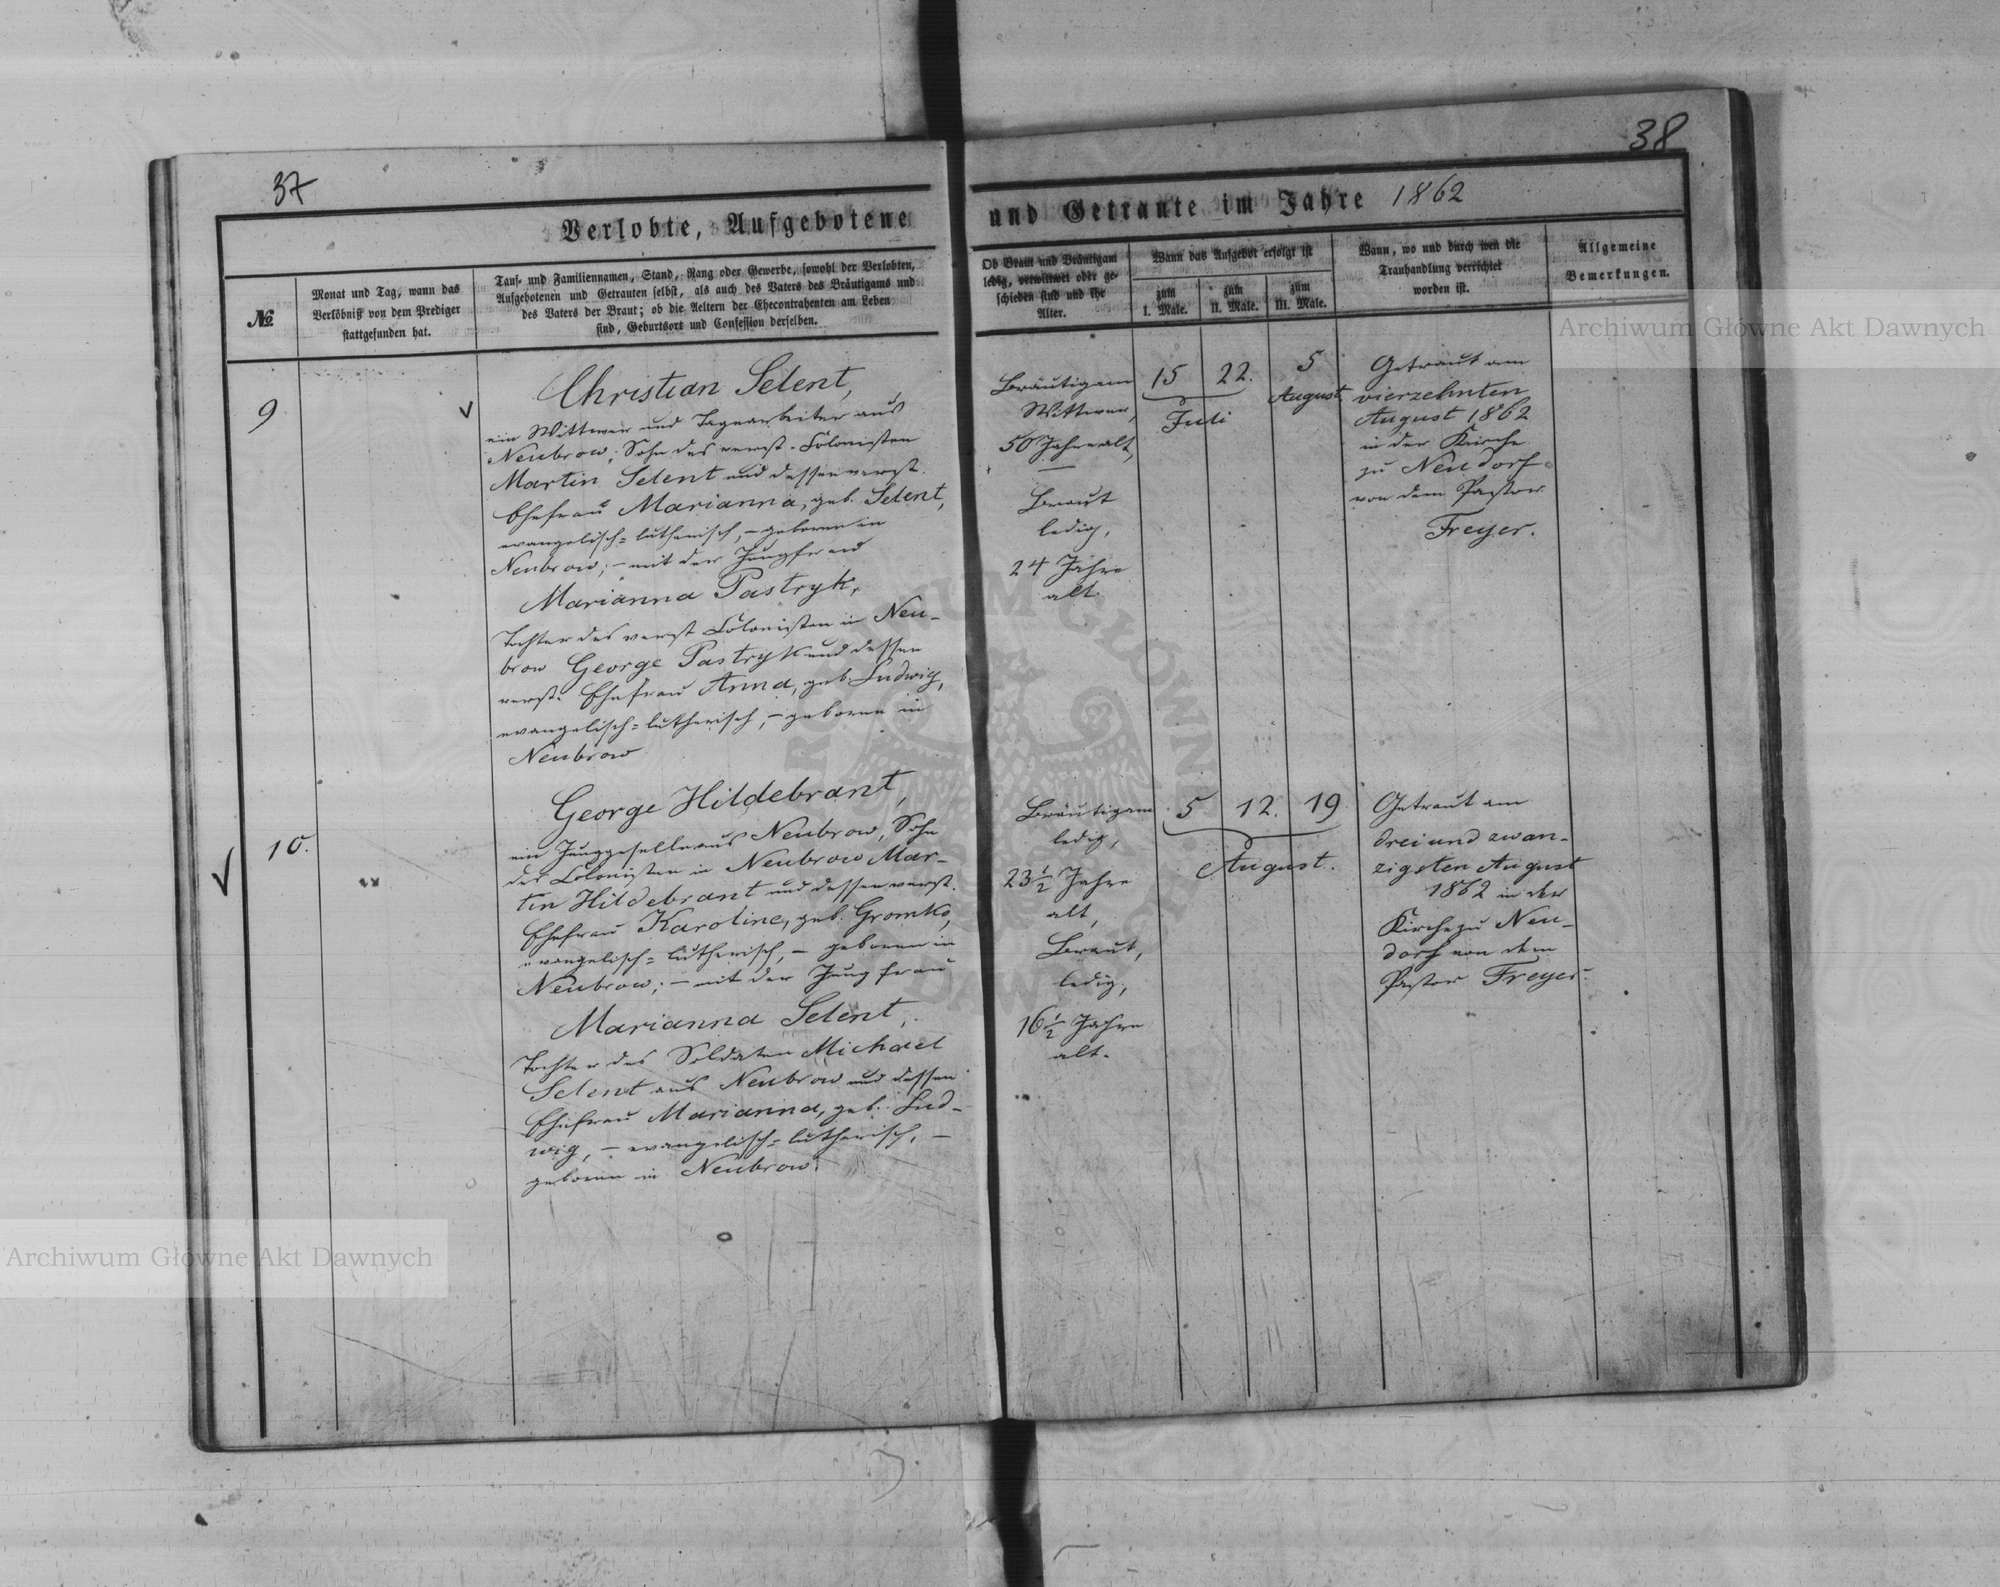 37
Verlobte, Aufgebotene
№
Monat und Tag, wann das
Verlöbniß von dem Prediger
stattgefunden hat.
Tauf- und Familiennamen, Stand, Rang oder Gewerbe, sowohl der Verlobten,
Aufgebotenen und Getrauten selbst, als auch des Vaters des Bräutigams und
des Vaters der Braut; ob die Aeltern der Ehecontrahenten am Leben
sind, Geburtsort und Confession derselben.
9
Christian Selent,
ein Wittwer und Tagearbeiter aus
Neubrow; Sohn des verst. Colonisten
Martin Selent und dessen verst.
Ehefrau Marianna, geb. Selent,
evangelisch-lutherisch, – geboren in
Neubrow; – mit der Jungfrau
Marianna Pastryk,
Tochter des verst Colonisten in Neu-
brow George Pastryk und dessen
verst. Ehefrau Anna, geb. Ludwig,
evangelisch-lutherisch, – geboren in
Neubrow
10.
George Hildebrant,
ein Junggeselle aus Neubrow, Sohn
des Colonisten in Neubrow Mar-
tin Hildebrant und dessen verst.
Ehefrau Karoline, geb. Gromko,
evangelisch-lutherisch, – geboren in
Neubrow; – mit der Jungfrau
Marianna Selent,
Tochter des Soldaten Michael
Selent aus Neubrow und dessen
Ehefrau Marianna, geb. Lud-
wig, – evangelisch-lutherisch, –
geboren in Neubrow.
38
und Getraute im Jahre 1862
Ob Braut und Bräutigam
ledig, verwittwet oder ge-
schieden sind und ihr
Alter.
Wann das Aufgebot erfolgt ist
zum
I. Male.
zum
II. Male.
zum
III. Male.
Wann, wo und durch wen die
Trauhandlung verrichtet
worden ist.
Allgemeine
Bemerkungen.
Bräutigam
Wittwer,
50 Jahre alt,
Braut
ledig,
24 Jahre
alt.
15
22.
Juli
5
August
Getraut am
vierzehnten
August 1862
in der Kirche
zu Neudorf
von dem Pastor
Freyer.
Bräutigam
ledig,
23 1/2 Jahre
alt,
Braut,
ledig,
16 1/2 Jahre
alt.
5
12.
19
August.
Getraut am
dreiundzwan-
zigsten August
1862 in der
Kirche zu Neu-
dorf von dem
Pastor Freyer.
Archiwum Główne Akt Dawnych
Archiwum Główne Akt Dawnych